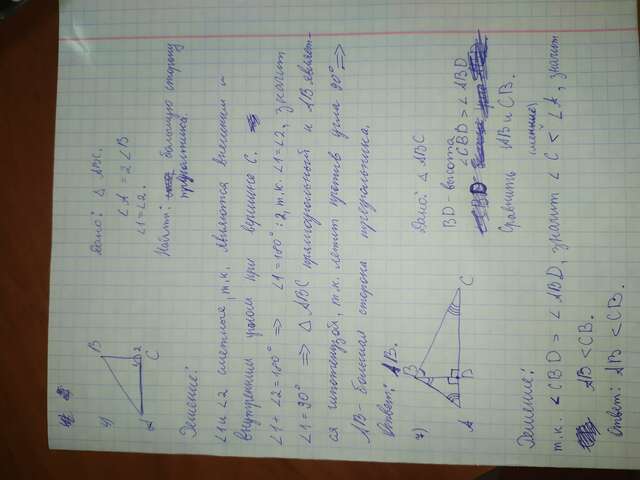 4)
B
1 2
C
Дано: △ ABC.
∠A = 2∠B
∠1 = ∠2.
Найти: большую сторону
треугольника
Решение:
∠1 и ∠2 смежные, т.к. являются внешним и
внутренним углом при вершине C.
∠1 = ∠2 = 180° ⇒ ∠1 = 180° : 2, т.к. ∠1 = ∠2, значит
∠1 = 90° ⇒ △ ABC прямоугольный и AB являет-
ся гипотенузой, т.к. лежит против угла 90° ⇒
AB - большая сторона треугольника.
Ответ: AB.
7)
B
A
D
C
Дано: △ ABC
BD - высота
∠CBD > ∠ABD
Сравнить AB и CB.
Решение:
(меньше)
т.к. ∠CBD > ∠ABD, значит ∠C < ∠A, значит
AB < CB.
Ответ: AB < CB.